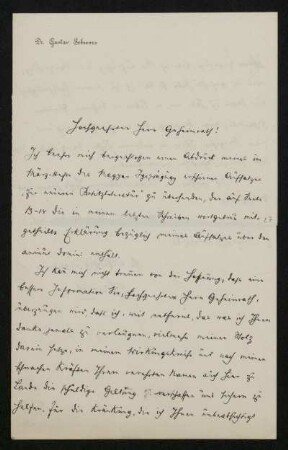 Dr. Gustav
Hochgeehrter Herr Geheimrath!
Ich beehre mich beigeschlossen einen Abdruck meines im
Märzhefte des Magyar Igazságügy erschienenen Aufsatzes
zu übersenden, der auf Seite
13-14 die in meinem letzten Schreiben wortgetreu mit-
getheilte Erklärung bezüglich meines Aufsatzes über den
animus domini enthält.
Ich kann mich nicht trennen von der Hoffnung, dass eine
bessere Information Sie, hochgeehrter Herr Geheimrath,
überzeugen wird, dass ich, weit entfernt, das was ich Ihnen
danke jemals zu verläugnen, vielmehr meinen Stolz
darein setze, in meinem Wirkungskreise und nach meinen
schwachen Kräften Ihrem verehrten Namen auch hier zu
Lande die schuldige Geltung zu verschaffen und sichern zu
helfen. Für die Kränkung, die ich Ihnen unbeabsichtigt